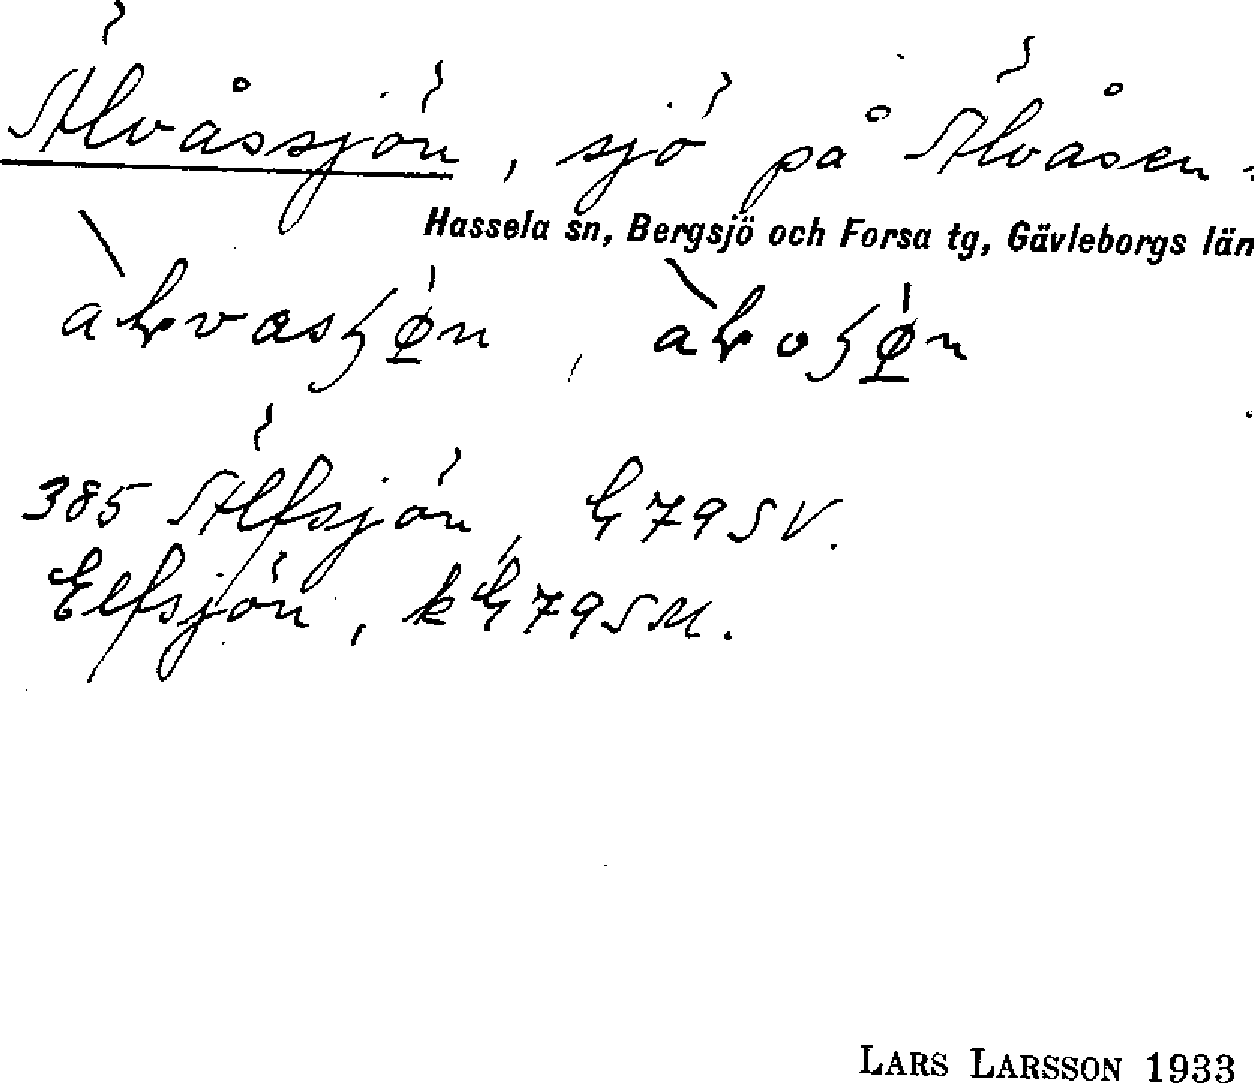 Älvåssjön, sjö på Älvåsen.
Hassela sn, Bergsjö och Forsa tg, Gävleborgs län
385 Älfsjön, G79SV.
Elfsjön, kG79SM.
LARS LARSSON 1933